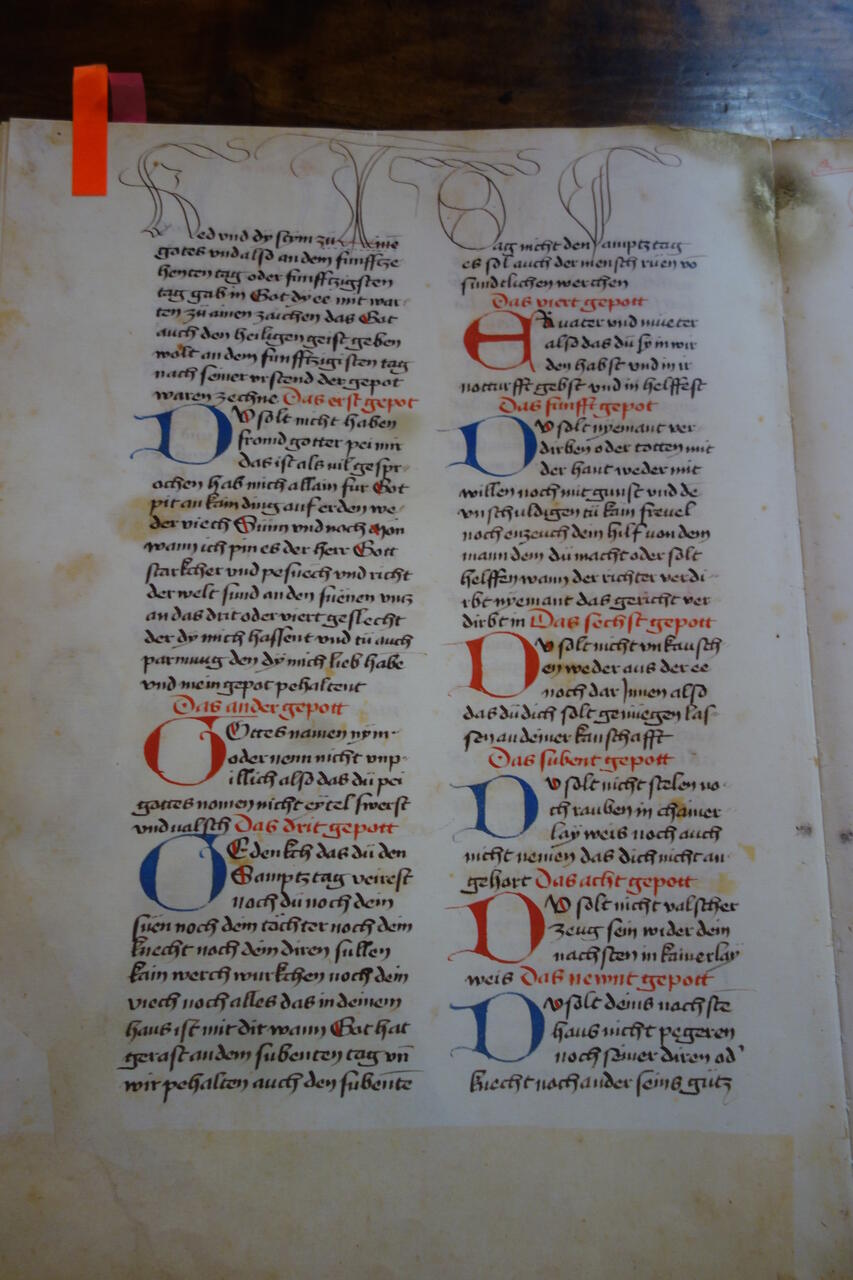 Red vnd dy stym zu Aine
gotes vnd also an dem funffcze
henten tag oder funfftzigsten
tag gab in Got dy ee mit war
ten zu ainen zaichen das Got
auch den heiligen geist geben
wolt an dem funfftzigisten tag
nach seiner vrstend der gepot
waren zechne Das erst gepot
DV solt nicht haben
fromd gotter pei mir
das ist als vil gespr
ochen hab mich allain fur Got
pit an kain ding auf erden we
der viech Sunn vnd noch mon
wann ich pin es der herr Gott
starkcher vnd pesuech vnd richt
der welt sund an den suenen vncz
an das drit oder viert geslecht
der dy mich hassent vnd tu auch
parmung den dy mich lieb habe
vnd mein gepot pehaltent
Das ander gepott
GOttes namen nym
oder nenn nicht vnp
illich also das du pei
gottes nomen nicht eytel swerst
vnd valsch Das drit gepott
GEdenkch das du den
Samptztag veirest
noch du noch dein
suen noch dem tochter noch dem
knecht noch dem diren sullen
kain werch wurkchen noch dein
viech noch alles das in deinem
haus ist mit dir wann Got hat
gerast an dem subenten tag vn
wir pehalten auch den subente
tag nicht den samptztag
es sol auch der mensch ruen vo
suntlichen werchen
Das viert gepott
ER vater vnd mueter
also das du sy in wir
den habst vnd in ir
notturfft gebst vnd in helffest
Das funfft gepot
DV solt nyemant ver
dirben oder totten mit
der hant weder mit
willen noch mit gunst vnd de
vnschuldigen tu kain freuel
noch enzeuch dein hilf von dem
mann dem du macht oder solt
helffen wann der richter verdi
rbt nyemant das gericht ver
dirbt in Das sechst gepott
DV solt nicht vnkausch
en weder aus der ee
noch dar Innen also
das du dich solt genuegen las
sen an deiner kanschafft
Das subent gepott
DV solt nicht stelen no
ch rauben in chainer
lay weis noch auch
nicht nemen das dich nicht an
gehort Das acht gepott
DV solt nicht valscher
zeug sein wider dein
nachsten in kainerlay
weis Das newnt gepott
DV solt deins nachste
haus nicht pegeren
noch seiner diren od
knecht noch ander seins gutz